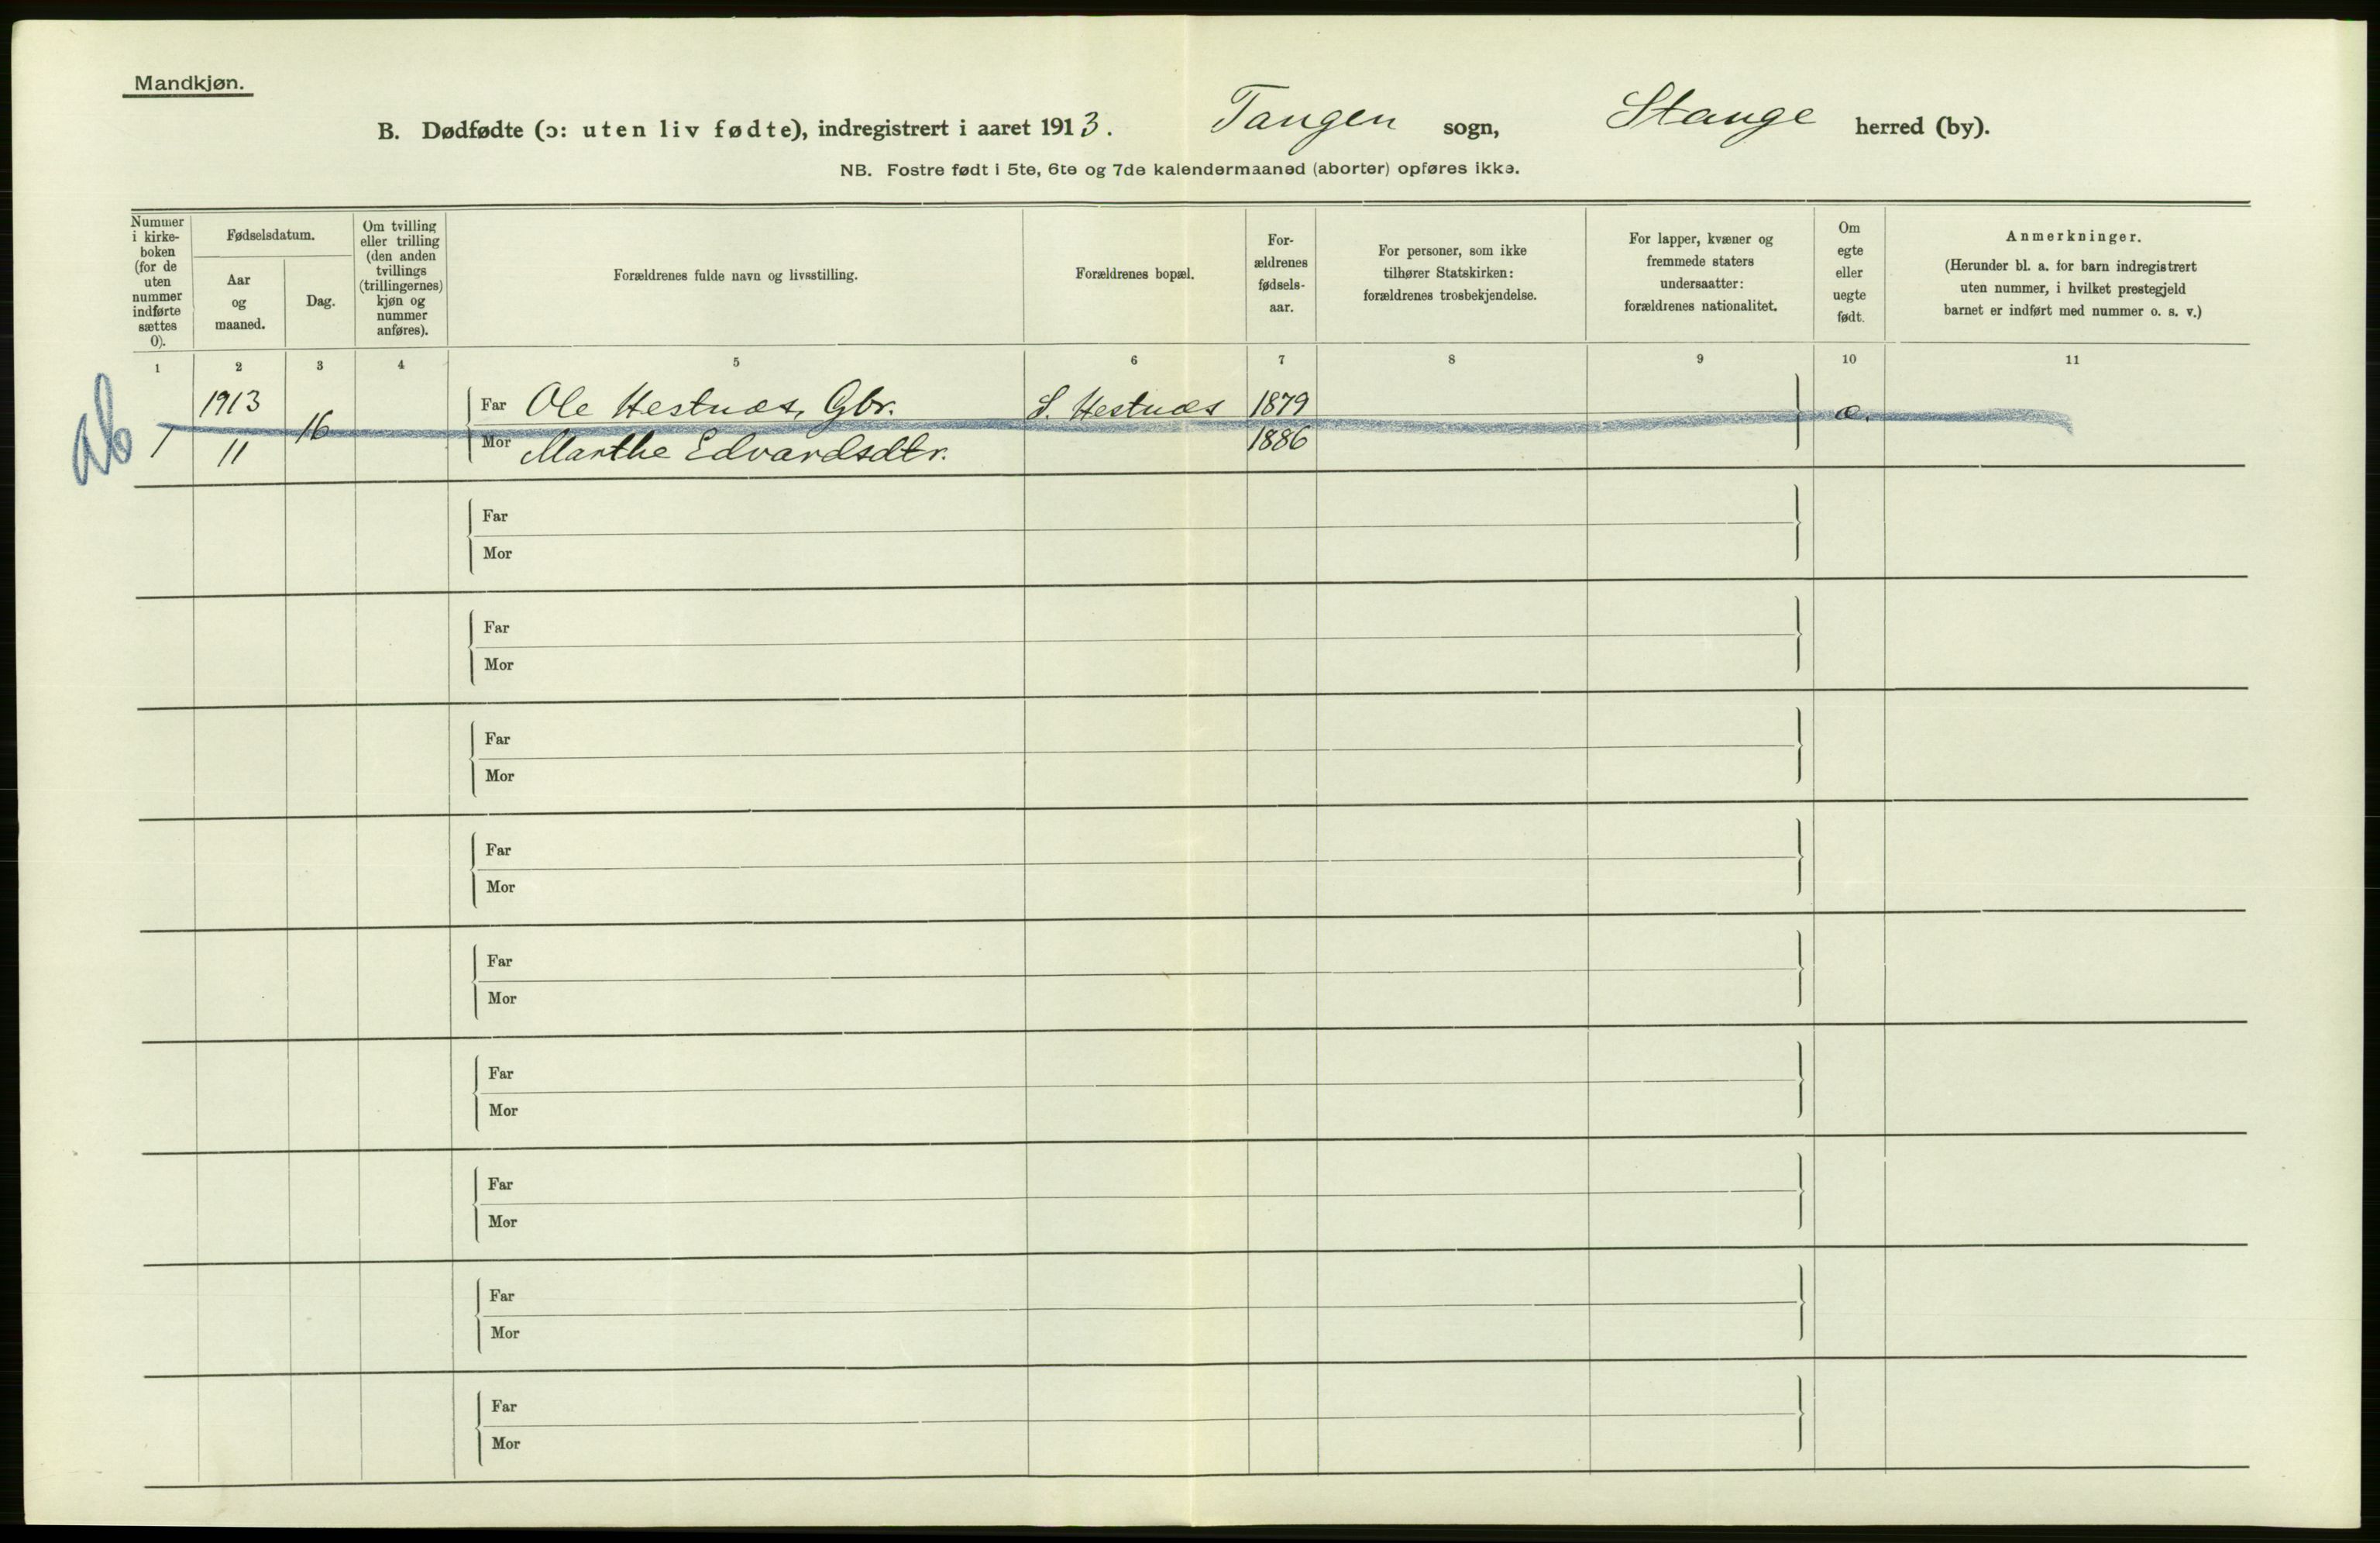 Mandkjøn.
B. Dødfødte (ɔ: uten liv fødte), indregistrert i aaret 1913. Tangen sogn, Stange herred (by).
NB. Fostre født i 5te, 6te og 7de kalendermaaned (aborter) opføres ikke.
Nummer
i kirke-
boken
(for de
uten
nummer
indførte
sættes
0).
Fødselsdatum.
Aar
og
maaned.
Dag.
Om tvilling
eller trilling
(den anden
tvillings
(trillingernes)
kjøn og
nummer
anføres).
Forældrenes fulde navn og livsstilling.
Forældrenes bopæl.
For-
ældrenes
fødsels-
aar.
For personer, som ikke
tilhører Statskirken:
forældrenes trosbekjendelse.
For lapper, kvæner og
fremmede staters
undersaatter:
forældrenes nationalitet.
Om
egte
eller
uegte
født.
Anmerkninger.
(Herunder bl. a. for barn indregistrert
uten nummer, i hvilket prestegjeld
barnet er indført med nummer o. s. v.)
1 2 3 4 5 6 7 8 9 10 11
ab
1913 Far Ole Hestnæs, Gbr. S. Hestnæs 1879
1 11 16 Mor Marthe Edvardsdtr. 1886 æ.
Far
Mor
Far
Mor
Far
Mor
Far
Mor
Far
Mor
Far
Mor
Far
Mor
Far
Mor
Far
Mor